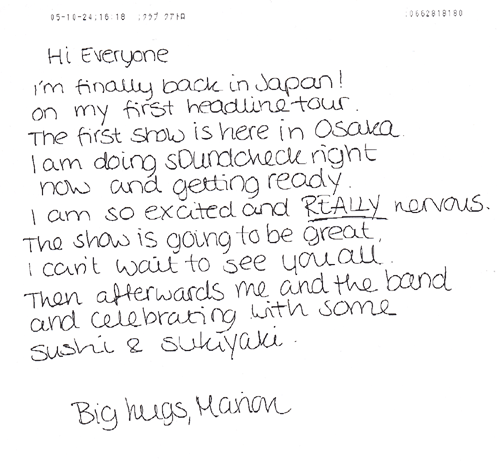 05-10-24;16:18 ;クラブ クアトロ ;0662818180
Hi Everyone
I'm finally back in Japan!
on my first headline tour.
The first show is here in Osaka.
I am doing soundcheck right
now and getting ready.
I am so excited and REALLY nervous.
The show is going to be great,
I can't wait to see you all.
Then afterwards me and the band
and celebrating with some
sushi & sukiyaki.
Big hugs, Marion